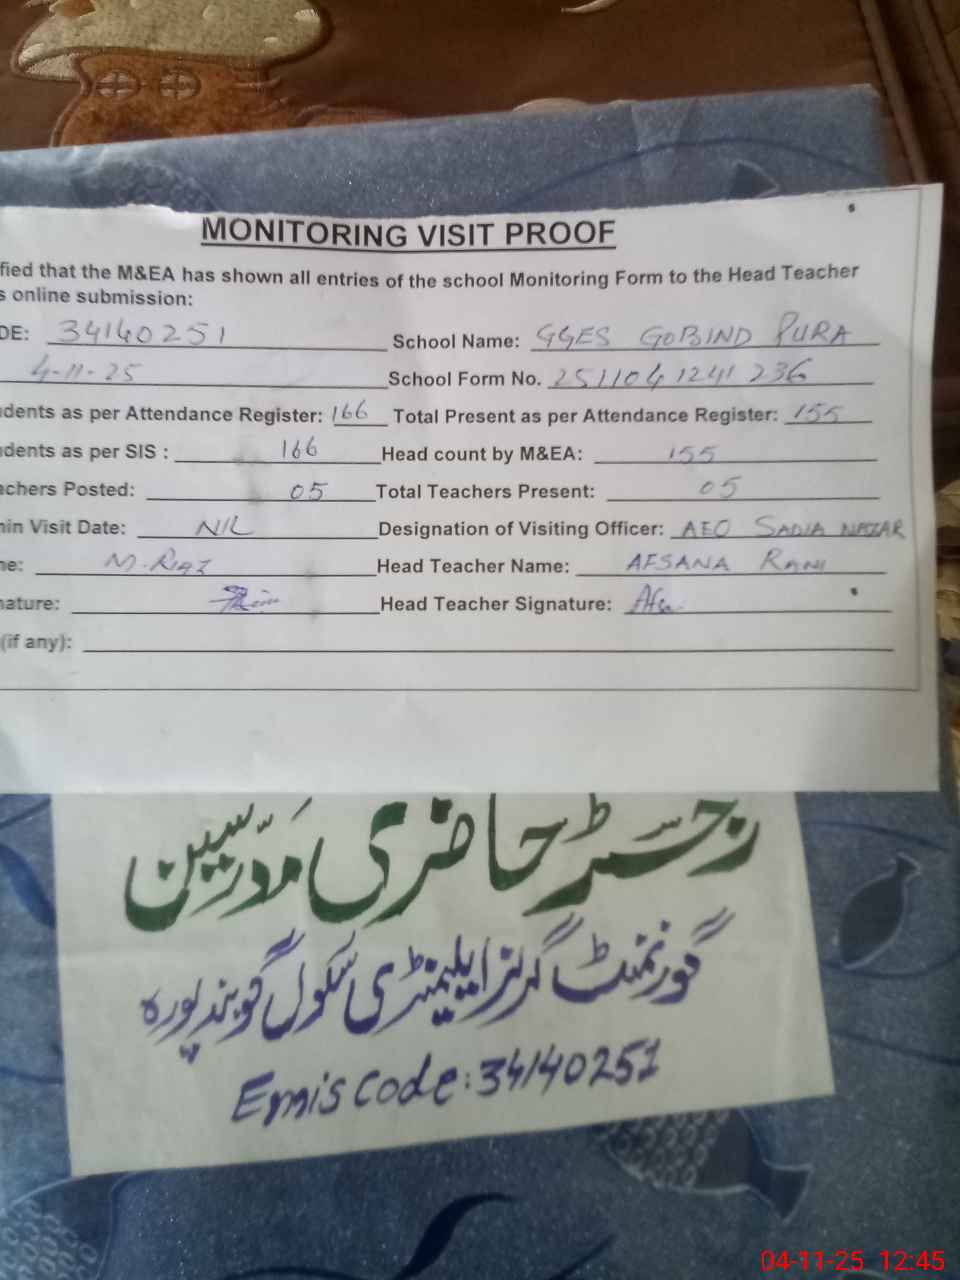 MONITORING VISIT PROOF
fied that the M&EA has shown all entries of the school Monitoring Form to the Head Teacher
s online submission:
DE: 34140251 School Name: GGES GOBIND PURA
4-11-25 School Form No. 2511041241236
dents as per Attendance Register: 166 Total Present as per Attendance Register: 155
dents as per SIS : 166 Head count by M&EA: 155
achers Posted: 05 Total Teachers Present: 05
min Visit Date: NIL Designation of Visiting Officer: AEO SADIA NAZAR
ne: M.Riaz Head Teacher Name: AFSANA RANI
nature: Head Teacher Signature: Afs
(if any):
رجسٹر حاضری مدرسین
گورنمنٹ گرلز ایلیمنٹری سکول گوبند پورہ
Emis Code: 34140251
04-11-25 12:45